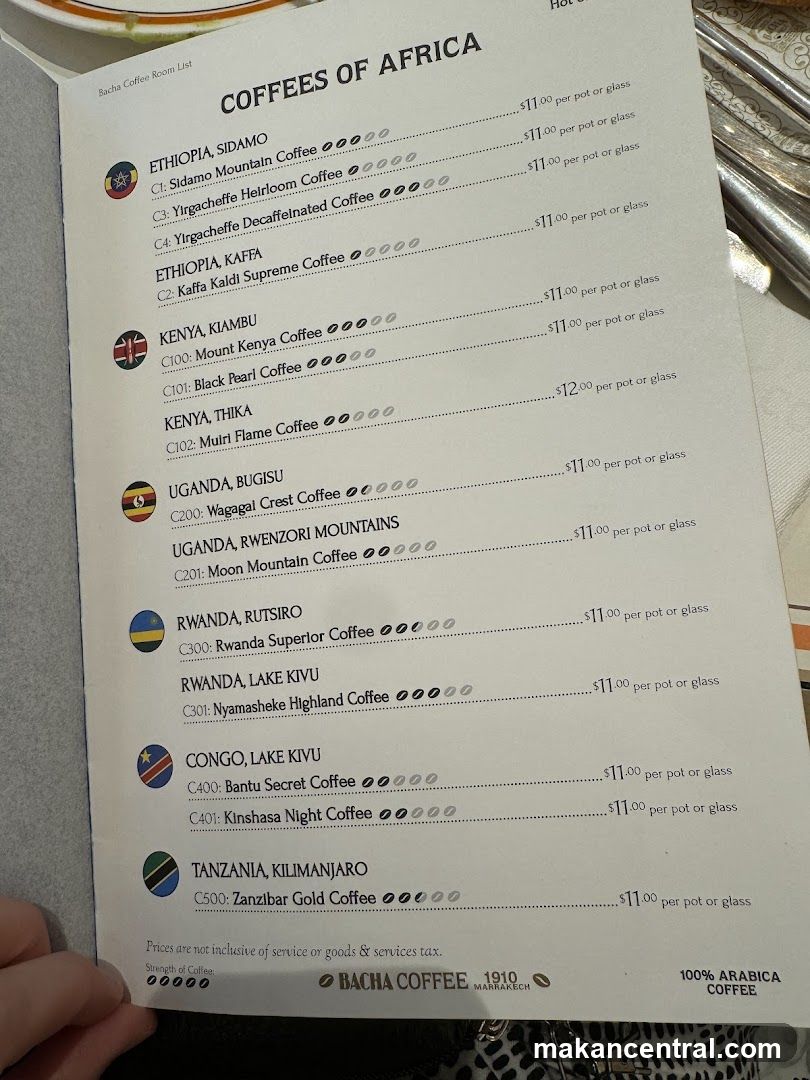 Bacha Coffee Room List
COFFEES OF AFRICA
ETHIOPIA, SIDAMO
C1: Sidamo Mountain Coffee $11.00 per pot or glass
C3: Yirgacheffe Heirloom Coffee $11.00 per pot or glass
C4: Yirgacheffe Decaffeinated Coffee $11.00 per pot or glass
ETHIOPIA, KAFFA
C2: Kaffa Kaldi Supreme Coffee $11.00 per pot or glass
KENYA, KIAMBU
C100: Mount Kenya Coffee $11.00 per pot or glass
C101: Black Pearl Coffee $11.00 per pot or glass
KENYA, THIKA
C102: Muiri Flame Coffee $12.00 per pot or glass
UGANDA, BUGISU
C200: Wagagai Crest Coffee $11.00 per pot or glass
UGANDA, RWENZORI MOUNTAINS
C201: Moon Mountain Coffee $11.00 per pot or glass
RWANDA, RUTSIRO
C300: Rwanda Superior Coffee $11.00 per pot or glass
RWANDA, LAKE KIVU
C301: Nyamasheke Highland Coffee $11.00 per pot or glass
CONGO, LAKE KIVU
C400: Bantu Secret Coffee $11.00 per pot or glass
C401: Kinshasa Night Coffee $11.00 per pot or glass
TANZANIA, KILIMANJARO
C500: Zanzibar Gold Coffee $11.00 per pot or glass
Prices are not inclusive of service or goods & services tax.
Strength of Coffee:
BACHA COFFEE 1910 MARRAKECH
100% ARABICA
COFFEE
makancentral.com